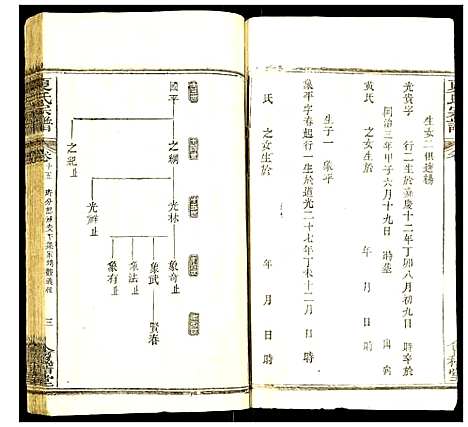 夏氏宗譜
生女二俱適楊
光貴字 行二生於嘉慶十二年丁卯八月初九日 時卒於
同治三年甲子六月十九日 時墓 山 向
黃氏 之女生於 年 月 日 時
生子一 象平
象平字春起行一生於道光二十七年丁未十二月 日 時
氏 之女生於 年 月 日 時
國平
之綱
之紀止
光林
光輝止
象奇止
象武
象法止
象有止
賢春
夏氏宗譜
卷十五
三